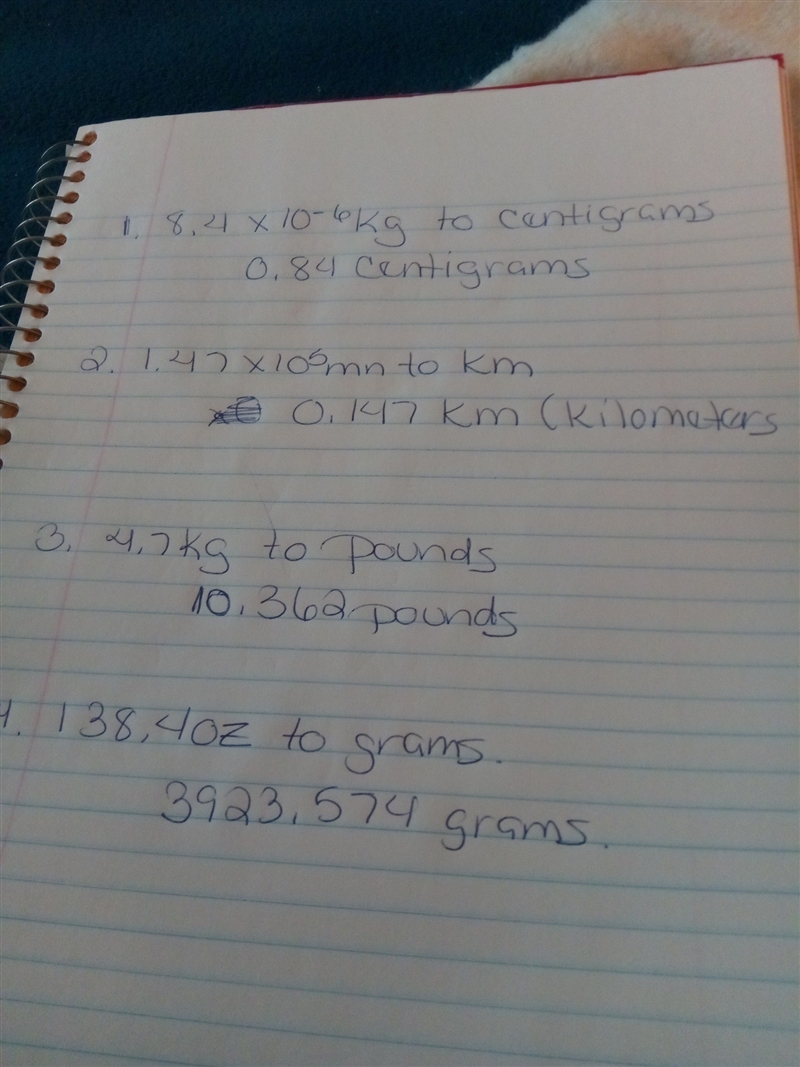 1. 8.4 x 10-6 kg to centigrams
0.84 centigrams
2. 1.47 x 105 mm to km
0.147 km (kilometers
3. 4.7 kg to pounds
10.362 pounds
4. 138.4 oz to grams.
3923.574 grams.